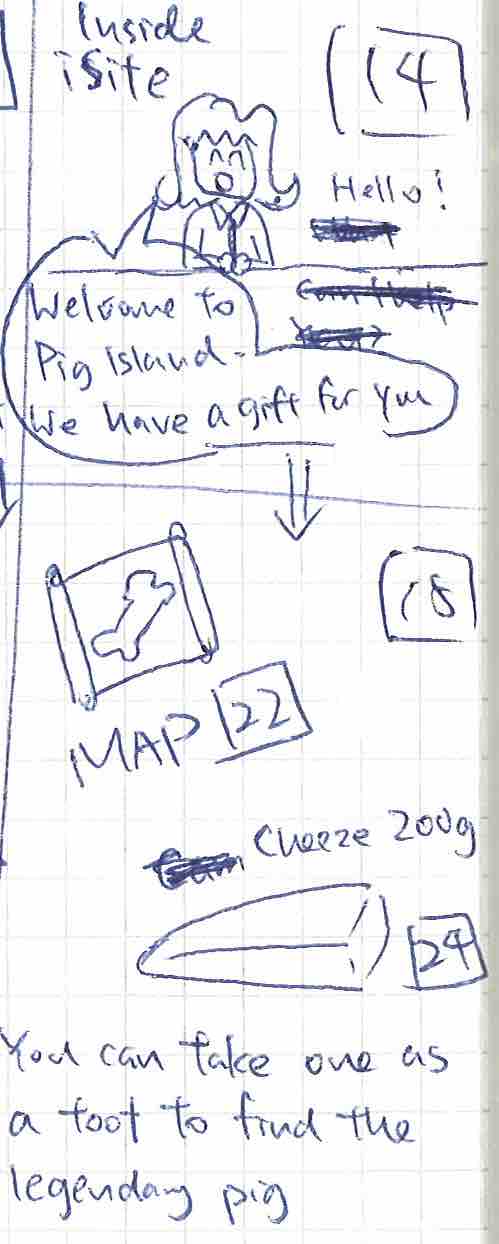 Inside
iSite
14
Hello!
Welcome to
Pig Island.
We have a gift for you
18
MAP 22
Cheeze 200g
24
You can take one as
a toot to find the
legendary pig